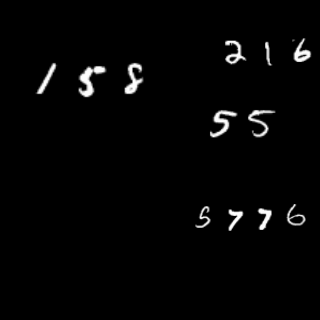 158
216
55
5776